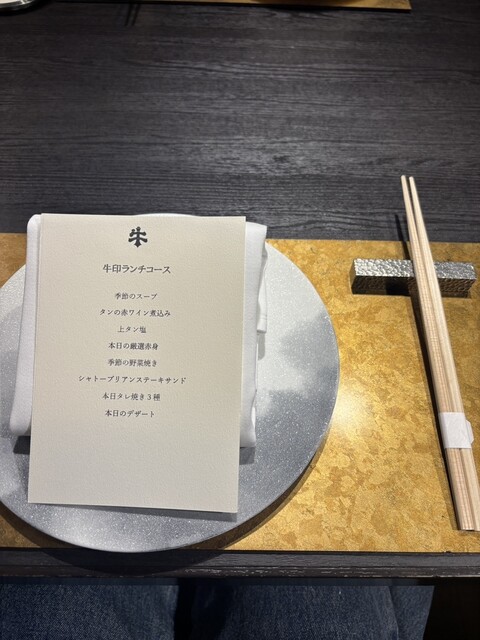 牛印ランチコース
季節のスープ
タンの赤ワイン煮込み
上タン塩
本日の厳選赤身
季節の野菜焼き
シャトーブリアンステーキサンド
本日タレ焼き３種
本日のデザート